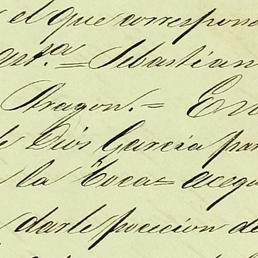 el que correspon
ra = Sebastian
Aragon. = En
Dios Garcia par
la Toca = acequ
darle posicion de